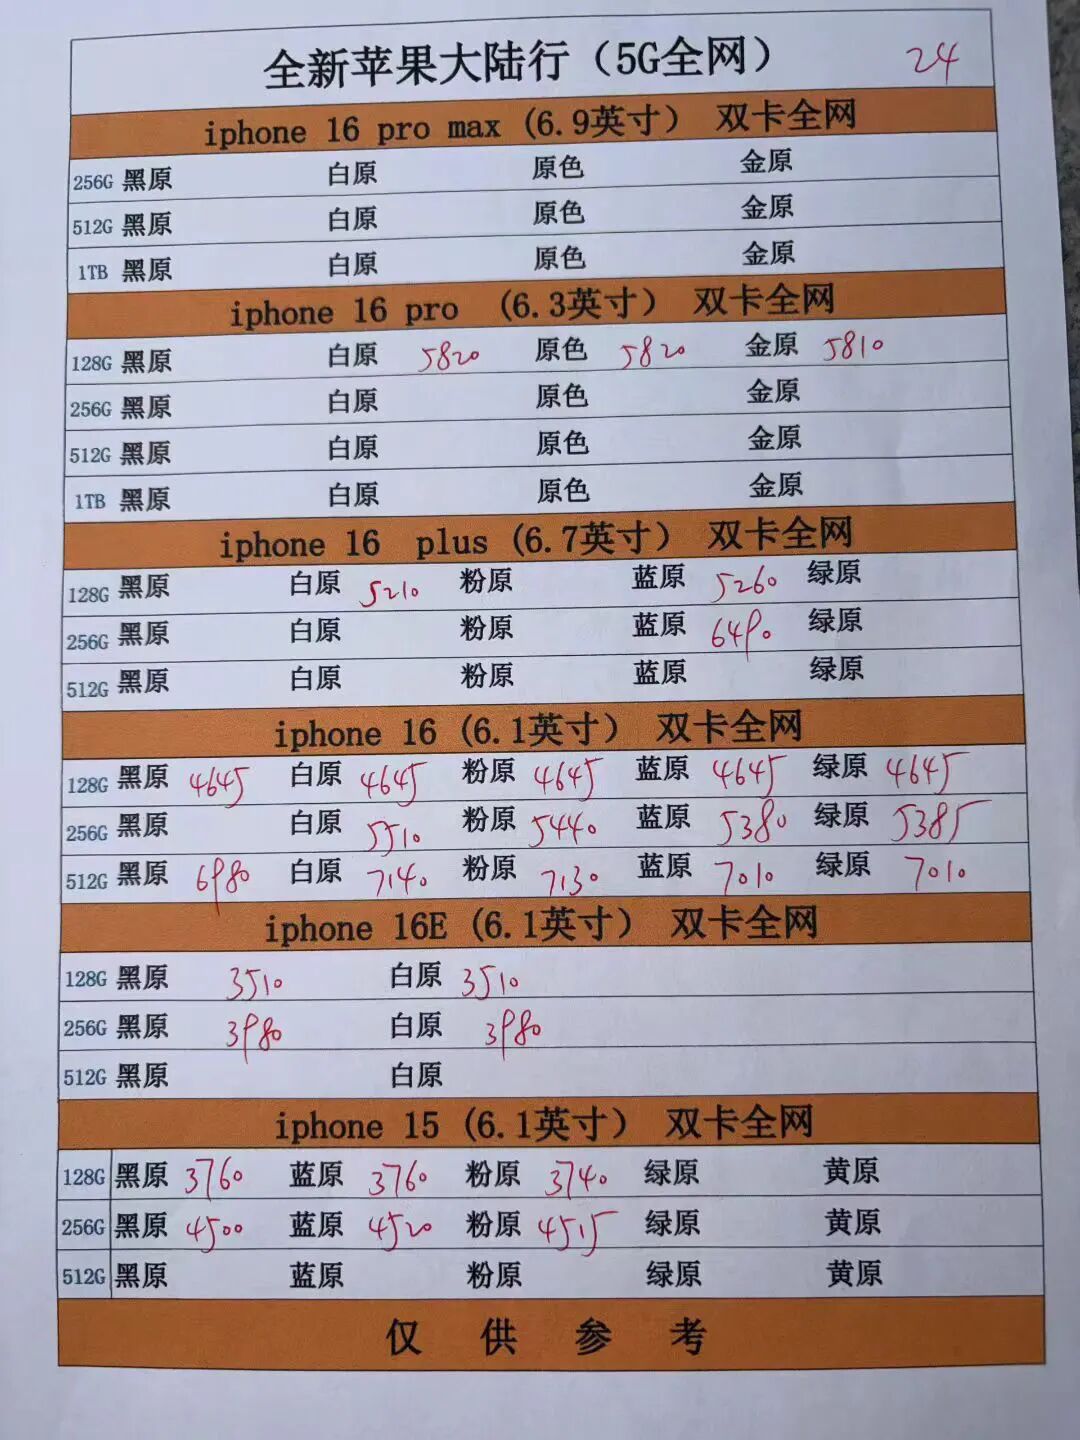 全新苹果大陆行（5G全网） 24
iphone 16 pro max (6.9英寸） 双卡全网
256G 黑原 白原 原色 金原
512G 黑原 白原 原色 金原
1TB 黑原 白原 原色 金原
iphone 16 pro （6.3英寸） 双卡全网
128G 黑原 白原 5820 原色 5820 金原 5810
256G 黑原 白原 原色 金原
512G 黑原 白原 原色 金原
1TB 黑原 白原 原色 金原
iphone 16 plus (6.7英寸） 双卡全网
128G 黑原 白原 5210 粉原 蓝原 5260 绿原
256G 黑原 白原 粉原 蓝原 6490 绿原
512G 黑原 白原 粉原 蓝原 绿原
iphone 16 (6.1英寸） 双卡全网
128G 黑原 4645 白原 4645 粉原 4645 蓝原 4645 绿原 4645
256G 黑原 白原 5510 粉原 5440 蓝原 5380 绿原 5385
512G 黑原 6980 白原 7140 粉原 7130 蓝原 7010 绿原 7010
iphone 16E (6.1英寸） 双卡全网
128G 黑原 3510 白原 3510
256G 黑原 3980 白原 3980
512G 黑原 白原
iphone 15 (6.1英寸） 双卡全网
128G 黑原 3760 蓝原 3760 粉原 3740 绿原 黄原
256G 黑原 4500 蓝原 4520 粉原 4515 绿原 黄原
512G 黑原 蓝原 粉原 绿原 黄原
仅供参考